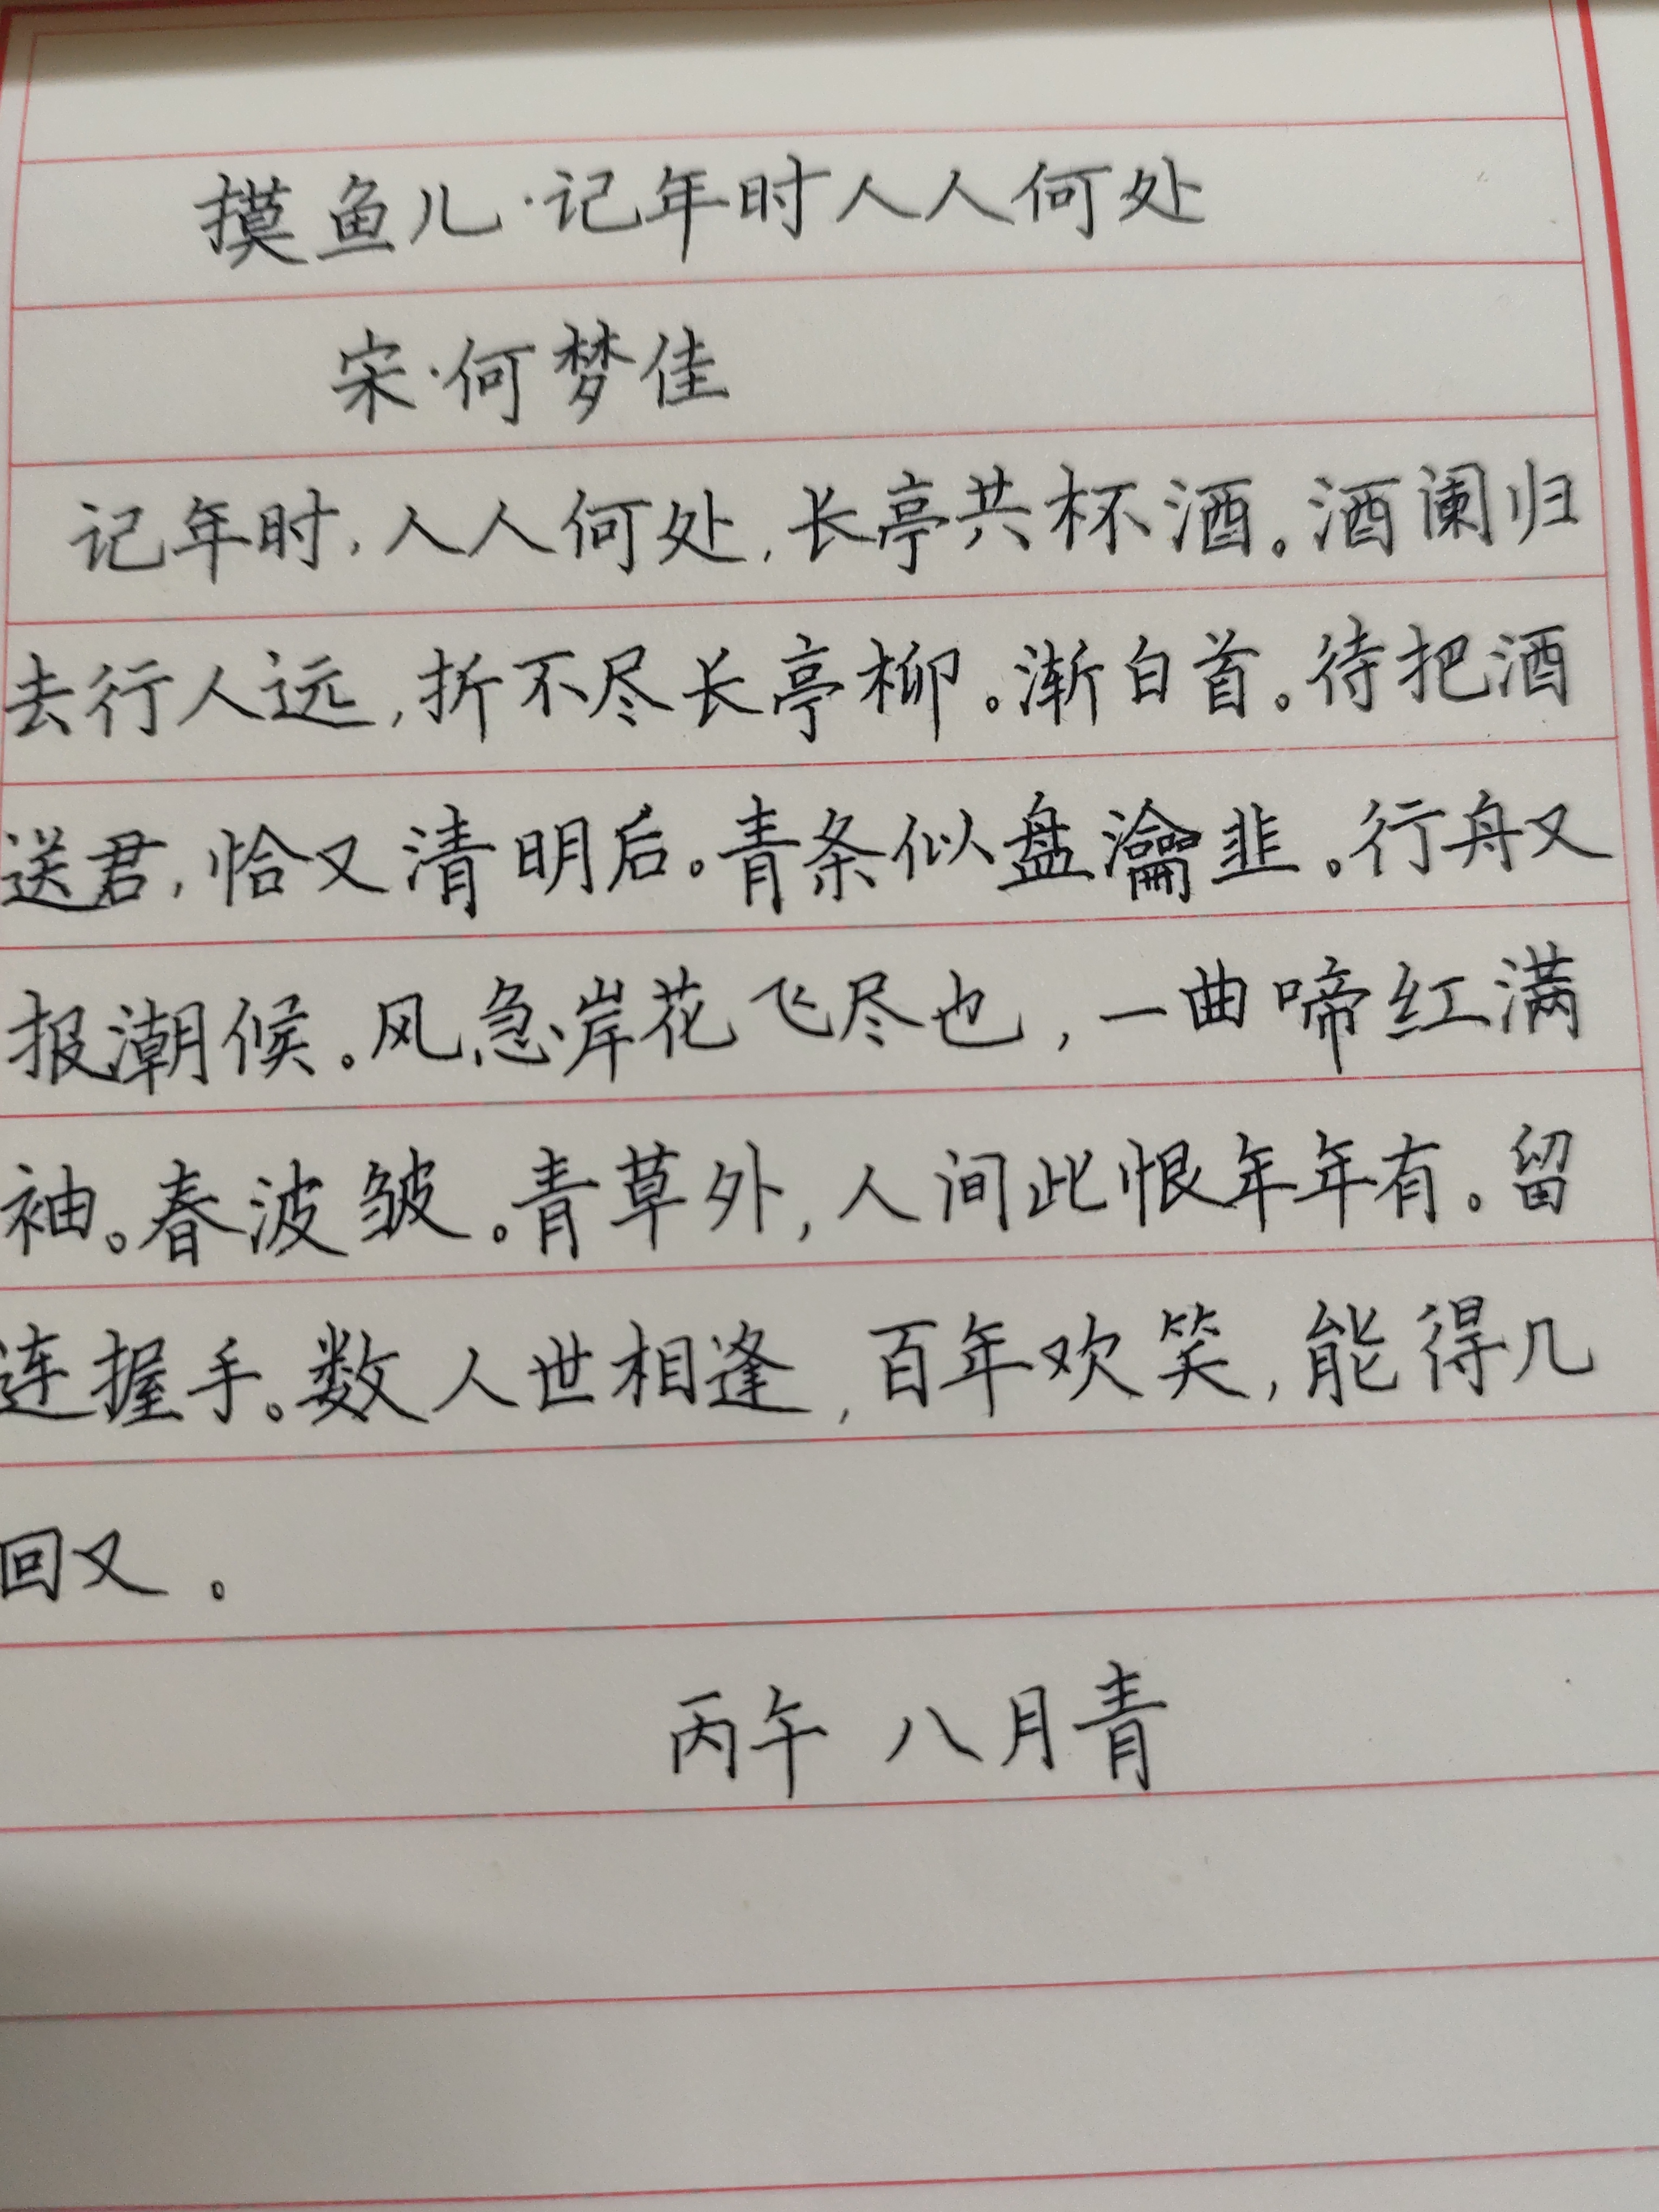 摸鱼儿·记年时人人何处
宋·何梦佳
记年时,人人何处,长亭共杯酒。酒阑归
去行人远,折不尽长亭柳。渐白首。待把酒
送君,恰又清明后。青条似盘瀹韭。行舟又
报潮候。风急岸花飞尽也,一曲啼红满
袖。春波皱。青草外,人间此恨年年有。留
连握手。数人世相逢,百年欢笑,能得几
回又。
丙午 八月青